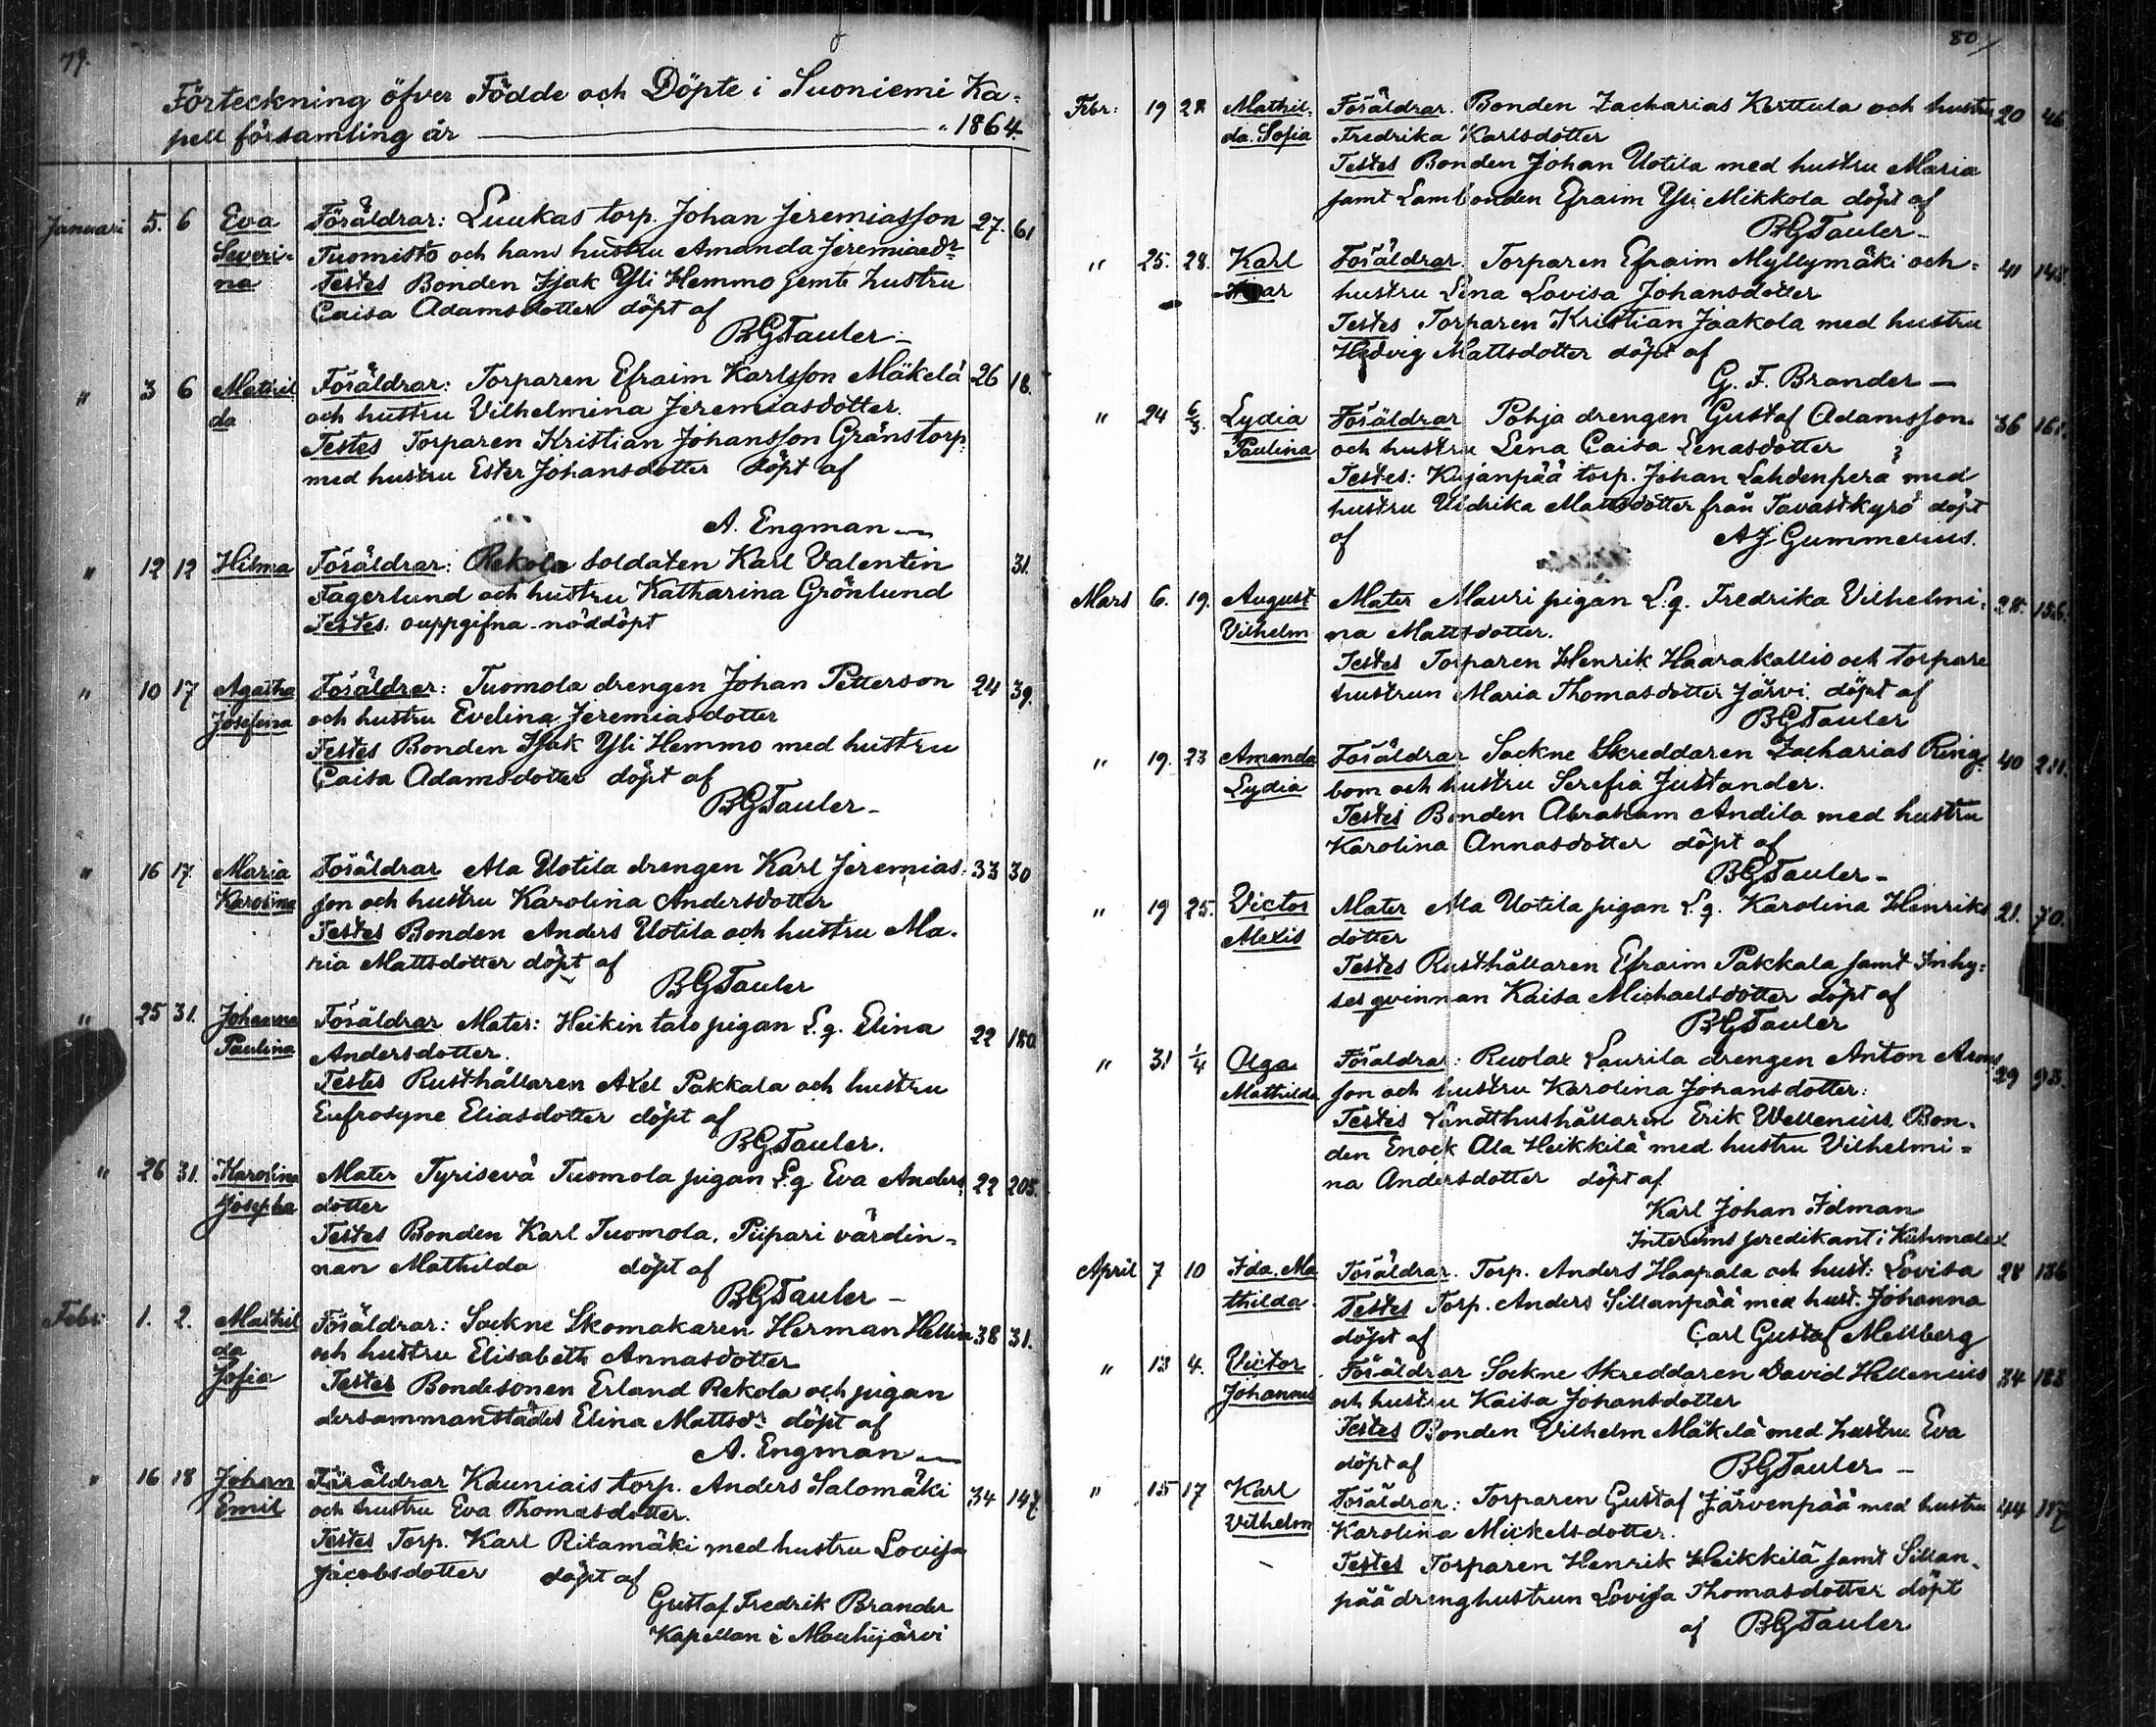 79.
Förteckning öfver Födde och Döpte i Suoniemi Ka=
pell församling år 1864.
Januari 5. 6 Eva Föräldrar: Luukas torp. Johan Jeremiasson 27. 61
Severi- Tuomisto och hans hustru Amanda Jeremiaedr
na Testes Bonden Isak Yli Hemmo jemte hustru
Caisa Adamsdotter döpt af
BGTauler
" 3 6 Mathil Föräldrar: Torparen Efraim Karlsson Mäkelä 26 18.
da och hustru Vilhelmina Jeremiasdotter.
Testes Torparen Kristian Johansson Gränstorp
med hustru Ester Johansdotter döpt af
A. Engman
" 12 12 Hilma Föräldrar: Rekola soldaten Karl Valentin 31.
Fagerlund och hustru Katharina Grönlund
Testes: ouppgifna - nöddöpt
" 10 17 Agatha Föräldrar: Tuomola drengen Johan Petterson 24 39.
Josefina och hustru Evelina Jeremiasdotter
Testes Bonden Isak Yli Hemmo med hustru
Caisa Adamsdotter döpt af
BGTauler
" 16 17. Maria Föräldrar Ala Uotila drengen Karl Jeremias= 33 30
Karolina son och hustru Karolina Andersdotter
Testes Bonden Anders Uotila och hustru Ma-
ria Mattsdotter döpt af
BGTauler
" 25 31. Johanna Föräldrar Mater: Heikin talo pigan L.q. Elina 22 180
Paulina Andersdotter.
Testes Rusthållaren Axel Pakkala och hustru
Eufrosyne Eliasdotter döpt af
BGTauler.
" 26 31. Karolina Mater Tyrisevä Tuomola pigan L.q Eva Anders= 22 205.
Josepha dotter
Testes Bonden Karl Tuomola, Piipari värdin=
nan Mathilda döpt af
BGTauler
Febr 1. 2. Mathil Föräldrar: Sockne Skomakaren Herman Hellin 38 31.
da och hustru Elisabeth Annasdotter
Sofia Testes Bondesonen Erland Rekola och pigan
dersammanstädes Elina Mattsdr döpt af
A. Engman
" 16 18 Johan Föräldrar Kauniais torp. Anders Salomäki 34 147.
Emil och hustru Eva Thomasdotter.
Testes Torp. Karl Ritamäki med hustru Lovisa
Jacobsdotter döpt af
Gustaf Fredrik Brander
Kapellan i Mouhijärvi
80
Febr: 19 28 Mathil- Föräldrar. Bonden Zacharias Kerttula och hustru 20 46
da Sofia Fredrika Karlsdotter
Testes Bonden Johan Uotila med hustru Maria
samt Lambonden Efraim Yli Mikkola döpt af
BGTauler
" 25. 28. Karl Föräldrar Torparen Efraim Myllymäki och= 41 148.
hustru Lena Lovisa Johansdotter
Testes Torparen Kristian Jaakola med hustru
Hedvig Mattsdotter döpt af
G. F. Brander
" 24 6/3. Lydia Föräldrar Pohja drengen Gustaf Adamsson 36
Paulina och hustru Lena Caisa Lenasdotter
Testes: Kujanpää torp. Johan Lahdenperä med
hustru Uldrika Mattsdotter från Tavastkyrö döpt
af AJ Gummerus.
Mars 6. 19. August Mater Mauri pigan L:q. Fredrika Vilhelmi= 28. 186.
Vilhelm na Mattsdotter.
Testes Torparen Henrik Haarakallio och torpare
hustrun Maria Thomasdotter Järvi döpt af
BGTauler
" 19. 23 Amanda Föräldrar Sockne Skreddaren Zacharias Ring= 40
Lydia bom och hustru Serefia Justander.
Testes Bonden Abraham Andila med hustru
Karolina Annasdotter döpt af
BGTauler
" 19 25. Victor Mater Ala Uotila pigan L.q. Karolina Henriks 21. 70.
Alexis dotter
Testes Rusthållaren Efraim Pakkala samt Inhy=
ses qvinnan Kaisa Michaelsdotter döpt af
BGTauler
" 31 1/4 Olga Föräldrar: Ruolax Laurila drengen Anton Arons 29 93.
Mathilda son och hustru Karolina Johansdotter:
Testes Landthushållaren Erik Wellenius, Bon-
den Enock Ala Heikkilä med hustru Vilhelmi=
na Andersdotter döpt af
Karl Johan Idman
Interims predikant i Kuhmalax
April 7 10 Ida Ma Föräldrar. Torp. Anders Haapala och hust: Lovisa 28 186
thilda. Testes Torp. Anders Sillanpää med hust. Johanna
döpt af Carl Gustaf Mellberg
" 13 4. Victor Föräldrar Sockne Skreddaren David Hellenius 34 183
Johannes och hustru Kaisa Johansdotter
Testes Bonden Vilhelm Mäkelä med hustru Eva
döpt af BGTauler
" 15 17 Karl Föräldrar: Torparen Gustaf Järvenpää med hustru 44 187
Vilhelm Karolina Mickelsdotter.
Testes Torparen Henrik Heikkilä samt Sillan-
pää drenghustrun Lovisa Thomasdotter döpt
af BGTauler